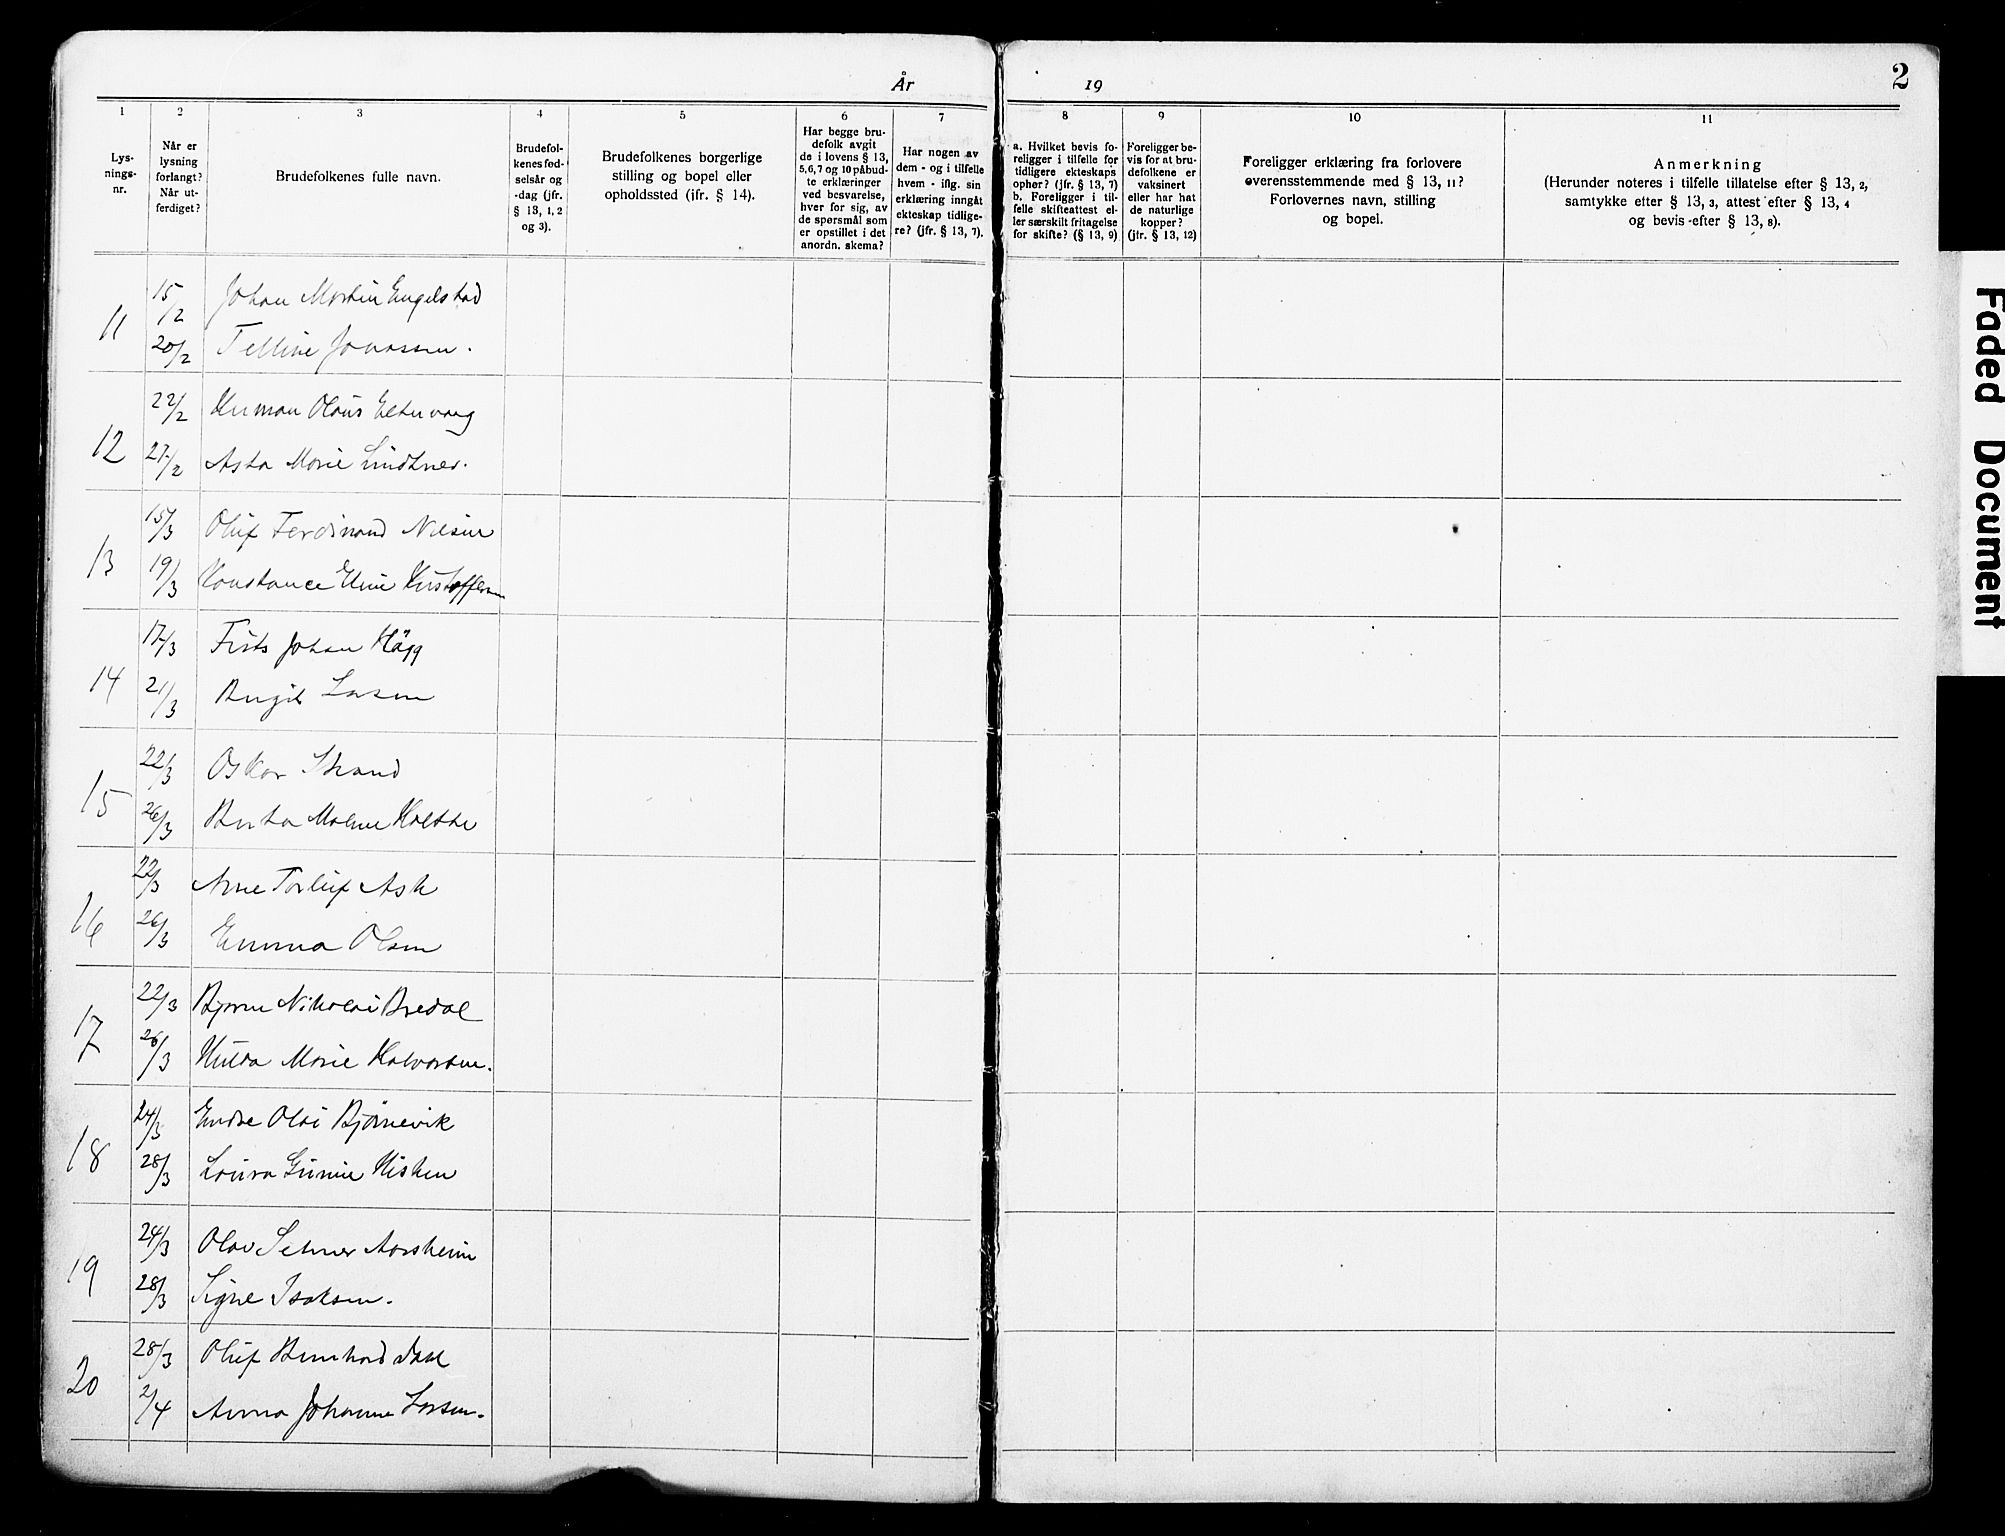 År 19
2
1
Lysningsnr.
2
Når er lysning forlangt? Når utferdiget?
3
Brudefolkenes fulle navn.
4
Brudefolkenes fødselsår og -dag (jfr. § 13, 1, 2 og 3).
5
Brudefolkenes borgerlige stilling og bopel eller opholdssted (jfr. § 14).
6
Har begge brudefolk avgit de i lovens § 13, 5, 6, 7 og 10 påbudte erklæringer ved besvarelse, hver for sig, av de spørsmål som er opstillet i det anordn. skema?
7
Har nogen av dem - og i tilfelle hvem - iflg. sin erklæring inngåt ekteskap tidligere? (jfr. § 13, 7).
8
a. Hvilket bevis foreligger i tilfelle for tidligere ekteskaps ophør? (jfr. § 13, 7)
b. Foreligger i tilfelle skifteattest eller særskilt fritagelse for skifte? (§ 13, 9)
9
Foreligger bevis for at brudefolkene er vaksinert eller har hat de naturlige kopper? (jfr. § 13, 12)
10
Foreligger erklæring fra forlovere overensstemmende med § 13, 11? Forlovernes navn, stilling og bopel.
11
Anmerkning
(Herunder noteres i tilfelle tillatelse efter § 13, 2, samtykke efter § 13, 3, attest efter § 13, 4 og bevis efter § 13, 8).
11
15/2 Johan Martin Engelstad
20/2 Telline Jonassen.
12
22/2 Herman Olaus
27/2 Asta Marie Lindtner.
13
15/3 Oluf Ferdinand Nilsen
19/3 Konstance Eline Kristoffersen
14
17/3 Frits Johan Hägg
21/3 Birgit Larsen
15
22/3 Oskar Strand
26/3 Berta Malene
16
22/3 Arne Torleif Ask
26/3 Emma Olsen
17
22/3 Bjarne Nikolai Bredal
26/3 Hilda Marie Halvorsen.
18
24/3 Endre Olai Bjørnevik
28/3 Laura Gunnie
19
24/3 Olav Selmer Aarsheim
28/3 Signe Isaksen.
20
28/3 Oluf Bernhard Dahl
2/4 Anna Johanne Larsen.
Faded Document